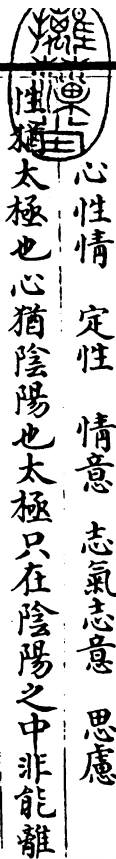 心性情 定性 情意 志氣志意 思慮
性猶太極也心猶陰陽也太極只在陰陽之中非能離